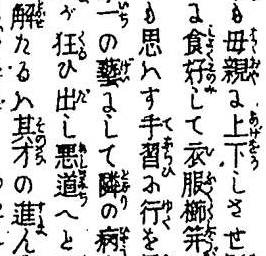 も母親に上下しさせ
食好して衣服櫛笄
も思ハす手習に行を
一の藝にして隣の病
が狂ひ出し悪道へと
解たるハ其才の進ん